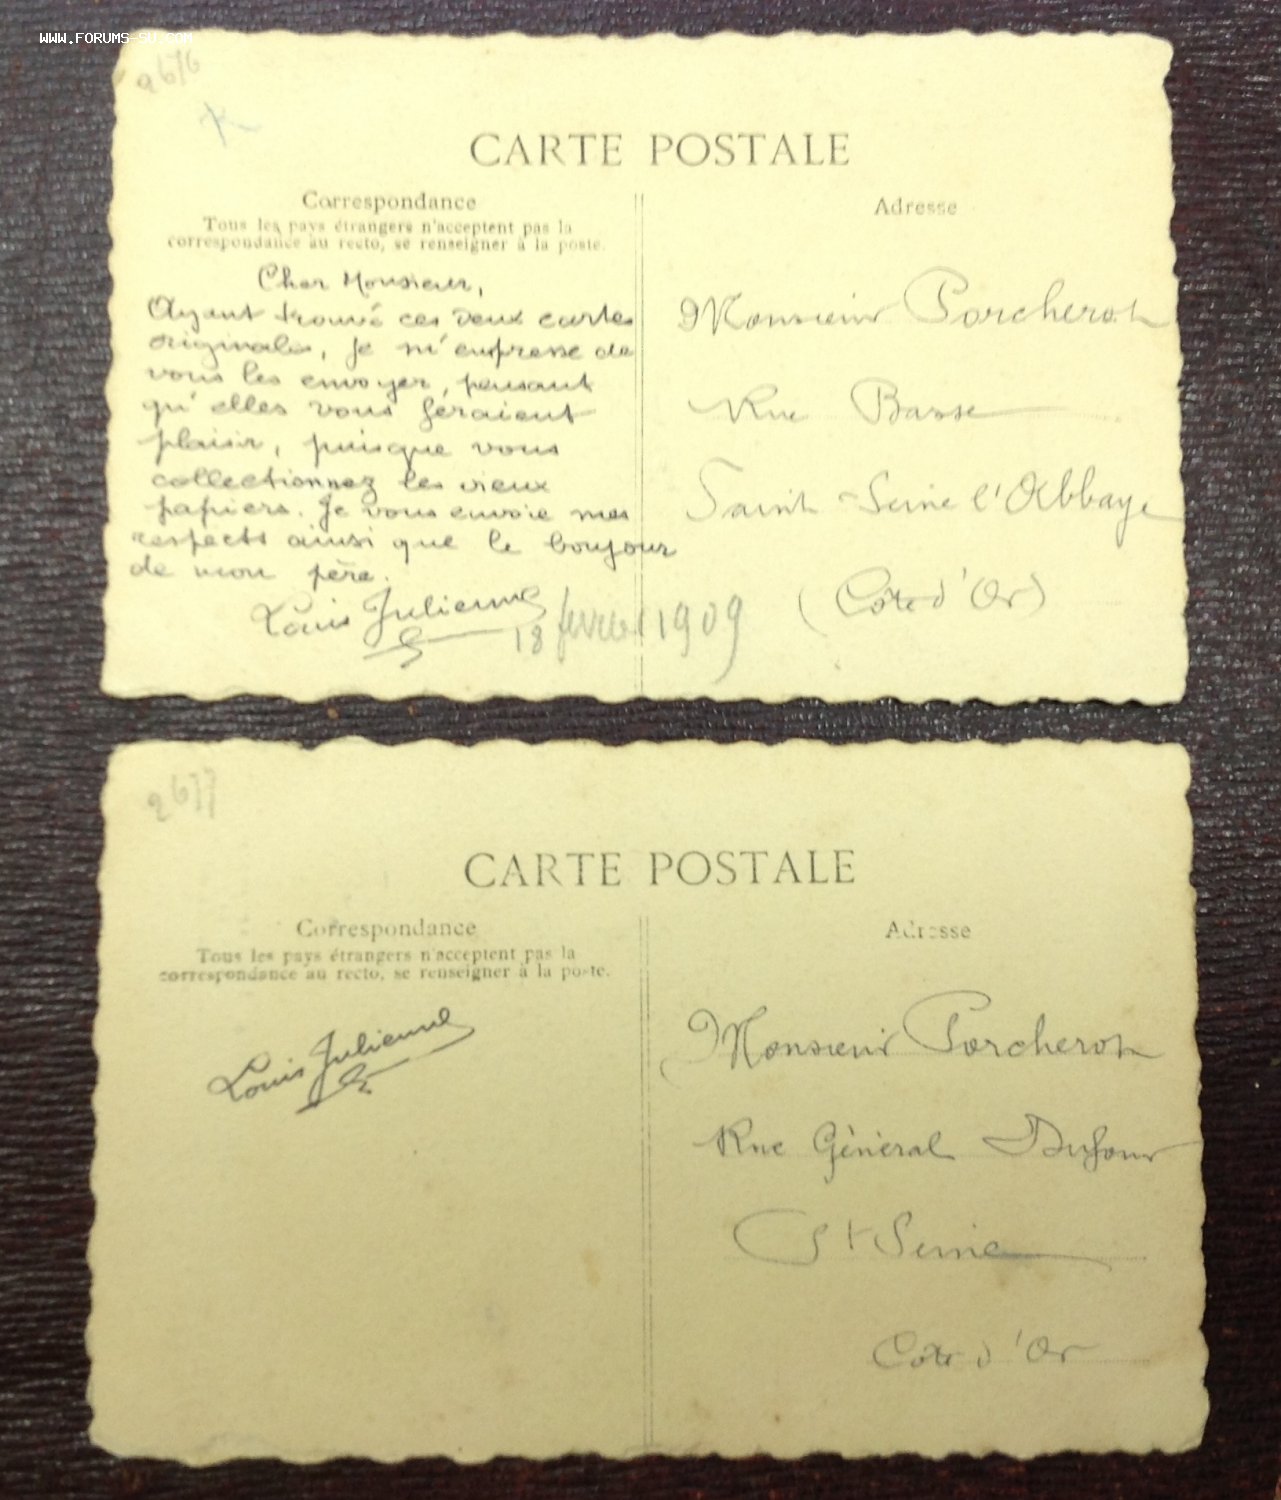 WWW.FORUMS-SU.COM
2676
CARTE POSTALE
Correspondance
Tous les pays étrangers n'acceptent pas la
correspondance au recto, se renseigner à la poste.
Cher Monsieur,
Ayant trouvé ces deux cartes
originales, je m'empresse de
vous les envoyer, pensant
qu'elles vous feraient
plaisir, puisque vous
collectionnez les vieux
papiers. Je vous envoie mes
respects ainsi que le bonjour
de mon père.
Louis Julienne
18 février 1909
Adresse
Monsieur Porcherot
Rue Basse
Saint-Seine l'Abbaye
(Côte d'Or)
2677
CARTE POSTALE
Correspondance
Tous les pays étrangers n'acceptent pas la
correspondance au recto, se renseigner à la poste.
Louis Julienne
Adresse
Monsieur Porcherot
Rue Général Dufour
St Seine
Côte d'Or